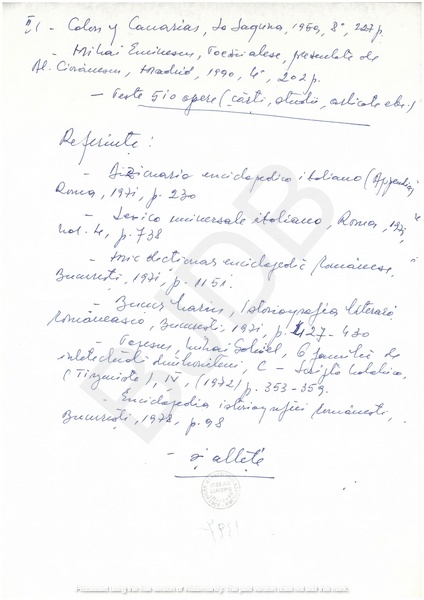 II/ - Colon y Canarias, La Laguna, 1959, 8°, 227 p.
- Mihai Eminescu, Poezii alese, prezentate de
Al. Ciorănescu, Madrid, 1990, 4°, 202 p.
- Peste 510 opere (cărți, studii, articole etc.)
Referințe:
- Dizionario enciclopedico italiano (Appendice)
Roma, 1971, p. 230
- Lexico universale italiano, Roma, 1971,
vol. 4, p. 738
- Mic dicționar enciclopedic românesc,
București, 1971, p. 1151.
- Bucur Marin, Istoriografia literară
românească, București, 1971, p. 427-430
- Mihai Gabriel, 6 familii de
intelectuali dîmbovițeni, C - Scripta Valahica,
(Tîrgoviște), IV, (1972) p. 353-359.
- Enciclopedia istoriografiei românești,
București, 1978, p. 98
- și altele
BJDB